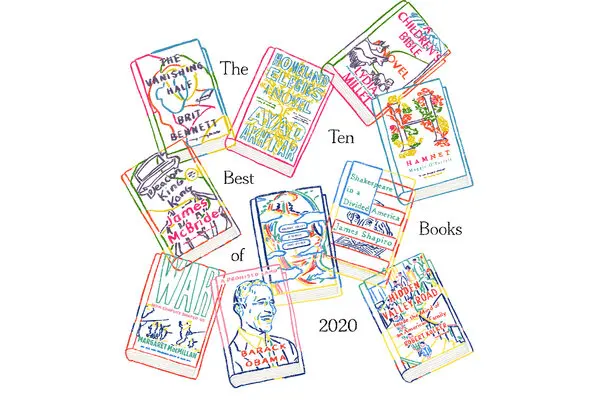 The
Ten
Best
Books
of
2020
THE
VANISHING
HALF
BRIT
BENNETT
HOMELAND
ELEGIES
A NOVEL
AYAD
AKHTAR
A
CHILDREN'S
BIBLE
A NOVEL
LYDIA
MILLET
HAMNET
Maggie O'Farrell
Deacon
King
Kong
James
McBride
Shakespeare
in a
Divided America
James Shapiro
WAR
MARGARET MACMILLAN
A PROMISED LAND
BARACK
OBAMA
HIDDEN
VALLEY ROAD
Inside the Mind of
an American Family
ROBERT KOLKER